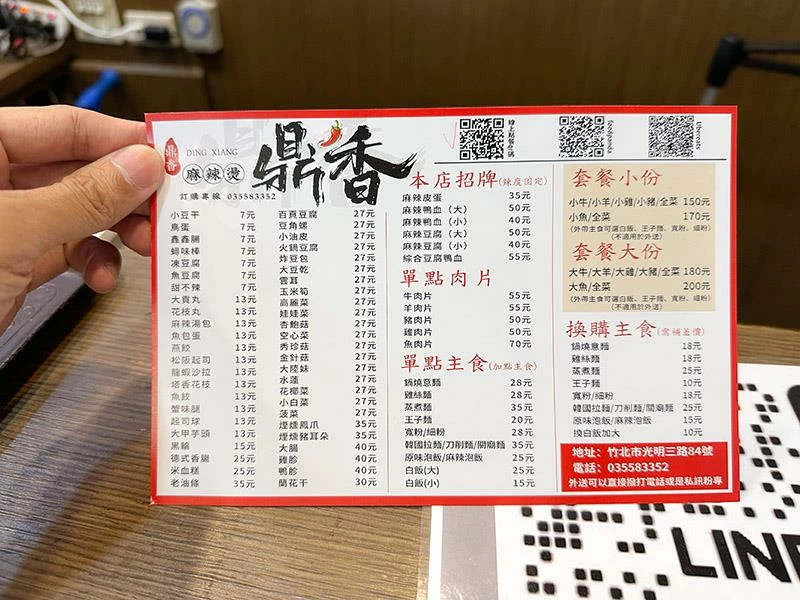 鼎香
DING XIANG
麻辣燙
訂購專線 035583352
鼎香
線上點餐QR碼
foodpanda
Ubereats
小豆干 7元
鳥蛋 7元
鑫鑫腸 7元
蟳味棒 7元
凍豆腐 7元
魚豆腐 7元
甜不辣 7元
大貢丸 13元
花枝丸 13元
麻辣湯包 13元
魚包蛋 13元
燕餃 13元
松阪起司 13元
龍蝦沙拉 13元
塔香花枝 13元
魚餃 13元
蟹味腿 13元
起司球 13元
大甲芋頭 13元
黑輪 15元
德式香腸 25元
米血糕 25元
老油條 35元
百頁豆腐 27元
豆角螺 27元
小油皮 27元
火鍋豆腐 27元
炸豆包 27元
大豆乾 27元
雲耳 27元
玉米筍 27元
高麗菜 27元
娃娃菜 27元
杏鮑菇 27元
空心菜 27元
秀珍菇 27元
金針菇 27元
大陸妹 27元
水蓮 27元
花椰菜 27元
小白菜 27元
菠菜 27元
煙燻鳳爪 35元
煙燻豬耳朵 35元
大腸 40元
雞胗 40元
鴨胗 40元
蘭花干 30元
本店招牌(辣度固定)
麻辣皮蛋 35元
麻辣鴨血(大) 50元
麻辣鴨血(小) 40元
麻辣豆腐(大) 50元
麻辣豆腐(小) 40元
綜合豆腐鴨血 55元
單點肉片
牛肉片 55元
羊肉片 55元
豬肉片 50元
雞肉片 50元
魚肉片 70元
單點主食(加點主食)
鍋燒意麵 28元
雞絲麵 28元
蒸煮麵 35元
王子麵 20元
寬粉/細粉 28元
韓國拉麵/刀削麵/關廟麵 35元
原味泡飯/麻辣泡飯 25元
白飯(大) 25元
白飯(小) 15元
套餐小份
小牛/小羊/小雞/小豬/全菜 150元
小魚/全菜 170元
(外帶主食可選白飯、王子麵、寬粉、細粉)
(不適用於外送)
套餐大份
大牛/大羊/大雞/大豬/全菜 180元
大魚/全菜 200元
(外帶主食可選白飯、王子麵、寬粉、細粉)
(不適用於外送)
換購主食(需補差價)
鍋燒意麵 18元
雞絲麵 18元
蒸煮麵 25元
王子麵 10元
寬粉/細粉 18元
韓國拉麵/刀削麵/關廟麵 25元
原味泡飯/麻辣泡飯 15元
換白飯加大 10元
地址：竹北市光明三路84號
電話：035583352
外送可以直接撥打電話或是私訊粉專
LINE